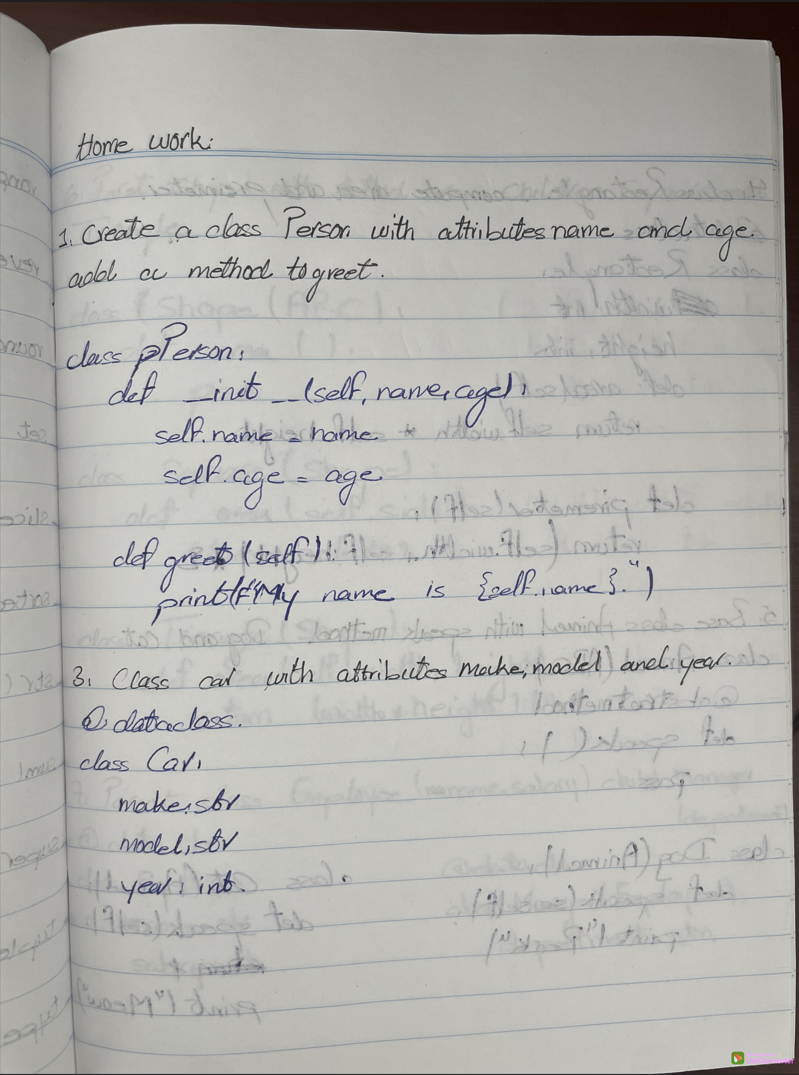 Home work:
1. Create a class Person with attributes name and age.
add a method to greet.
class pPerson:
def __init__(self, name, age):
self.name = name
self.age = age
def greet (self):
print(f"My name is {self.name}.")
3. Class car with attributes make, model and year.
@ dataclass.
class Car:
make: str
model: str
year: int.